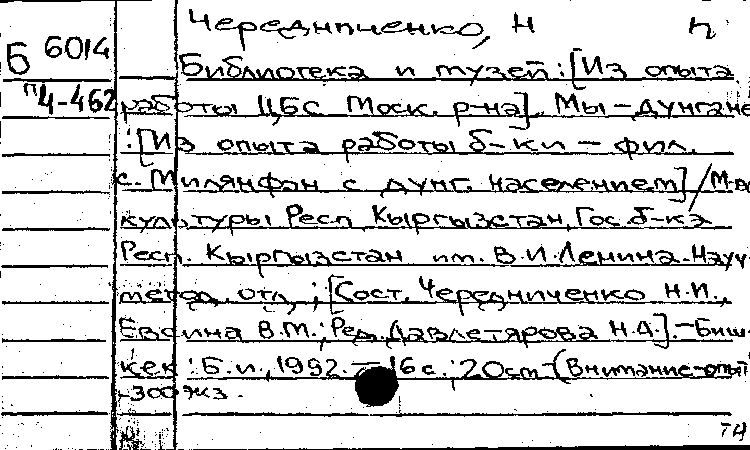 Чередниченко, Н
Б 6014
п4-462
Библиотека и музей:[Из опыта
работы ЦБС Моск. р-на]. Мы-дунгане
:[Из опыта работы б-ки - фил.
с. Милянфан с дунг. населением]/М-во
культуры Респ Кыргызстан, Гос. б-ка
Респ. Кыргызстан им. В.И.Ленина. Науч-
метод. отд.; [Сост. Чередниченко Н.И.,
Евсина В.М.; Ред. Давлетярова Н.А.].-Биш-
кек : Б.и., 1992. - 16 с.; 20 cm - (Внимание-опыт)
-300 экз.